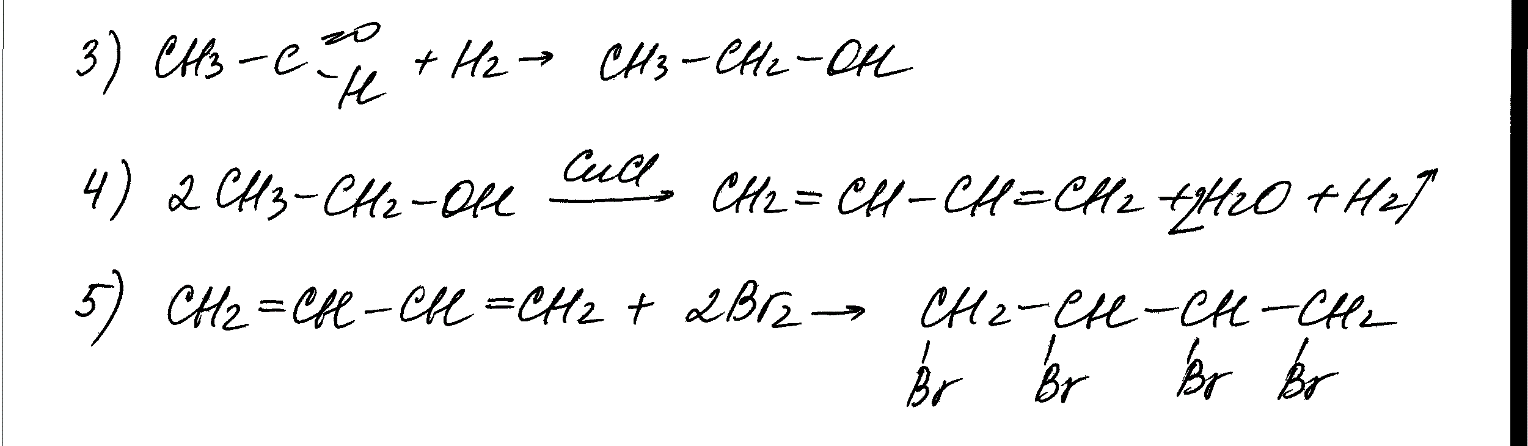 3) CH3-C=O-H + H2 → CH3-CH2-OH
4) 2 CH3-CH2-OH CuCl → CH2=CH-CH=CH2 + 2H2O + H2↑
5) CH2=CH-CH=CH2 + 2Br2 → CH2-CH-CH-CH2
Br Br Br Br